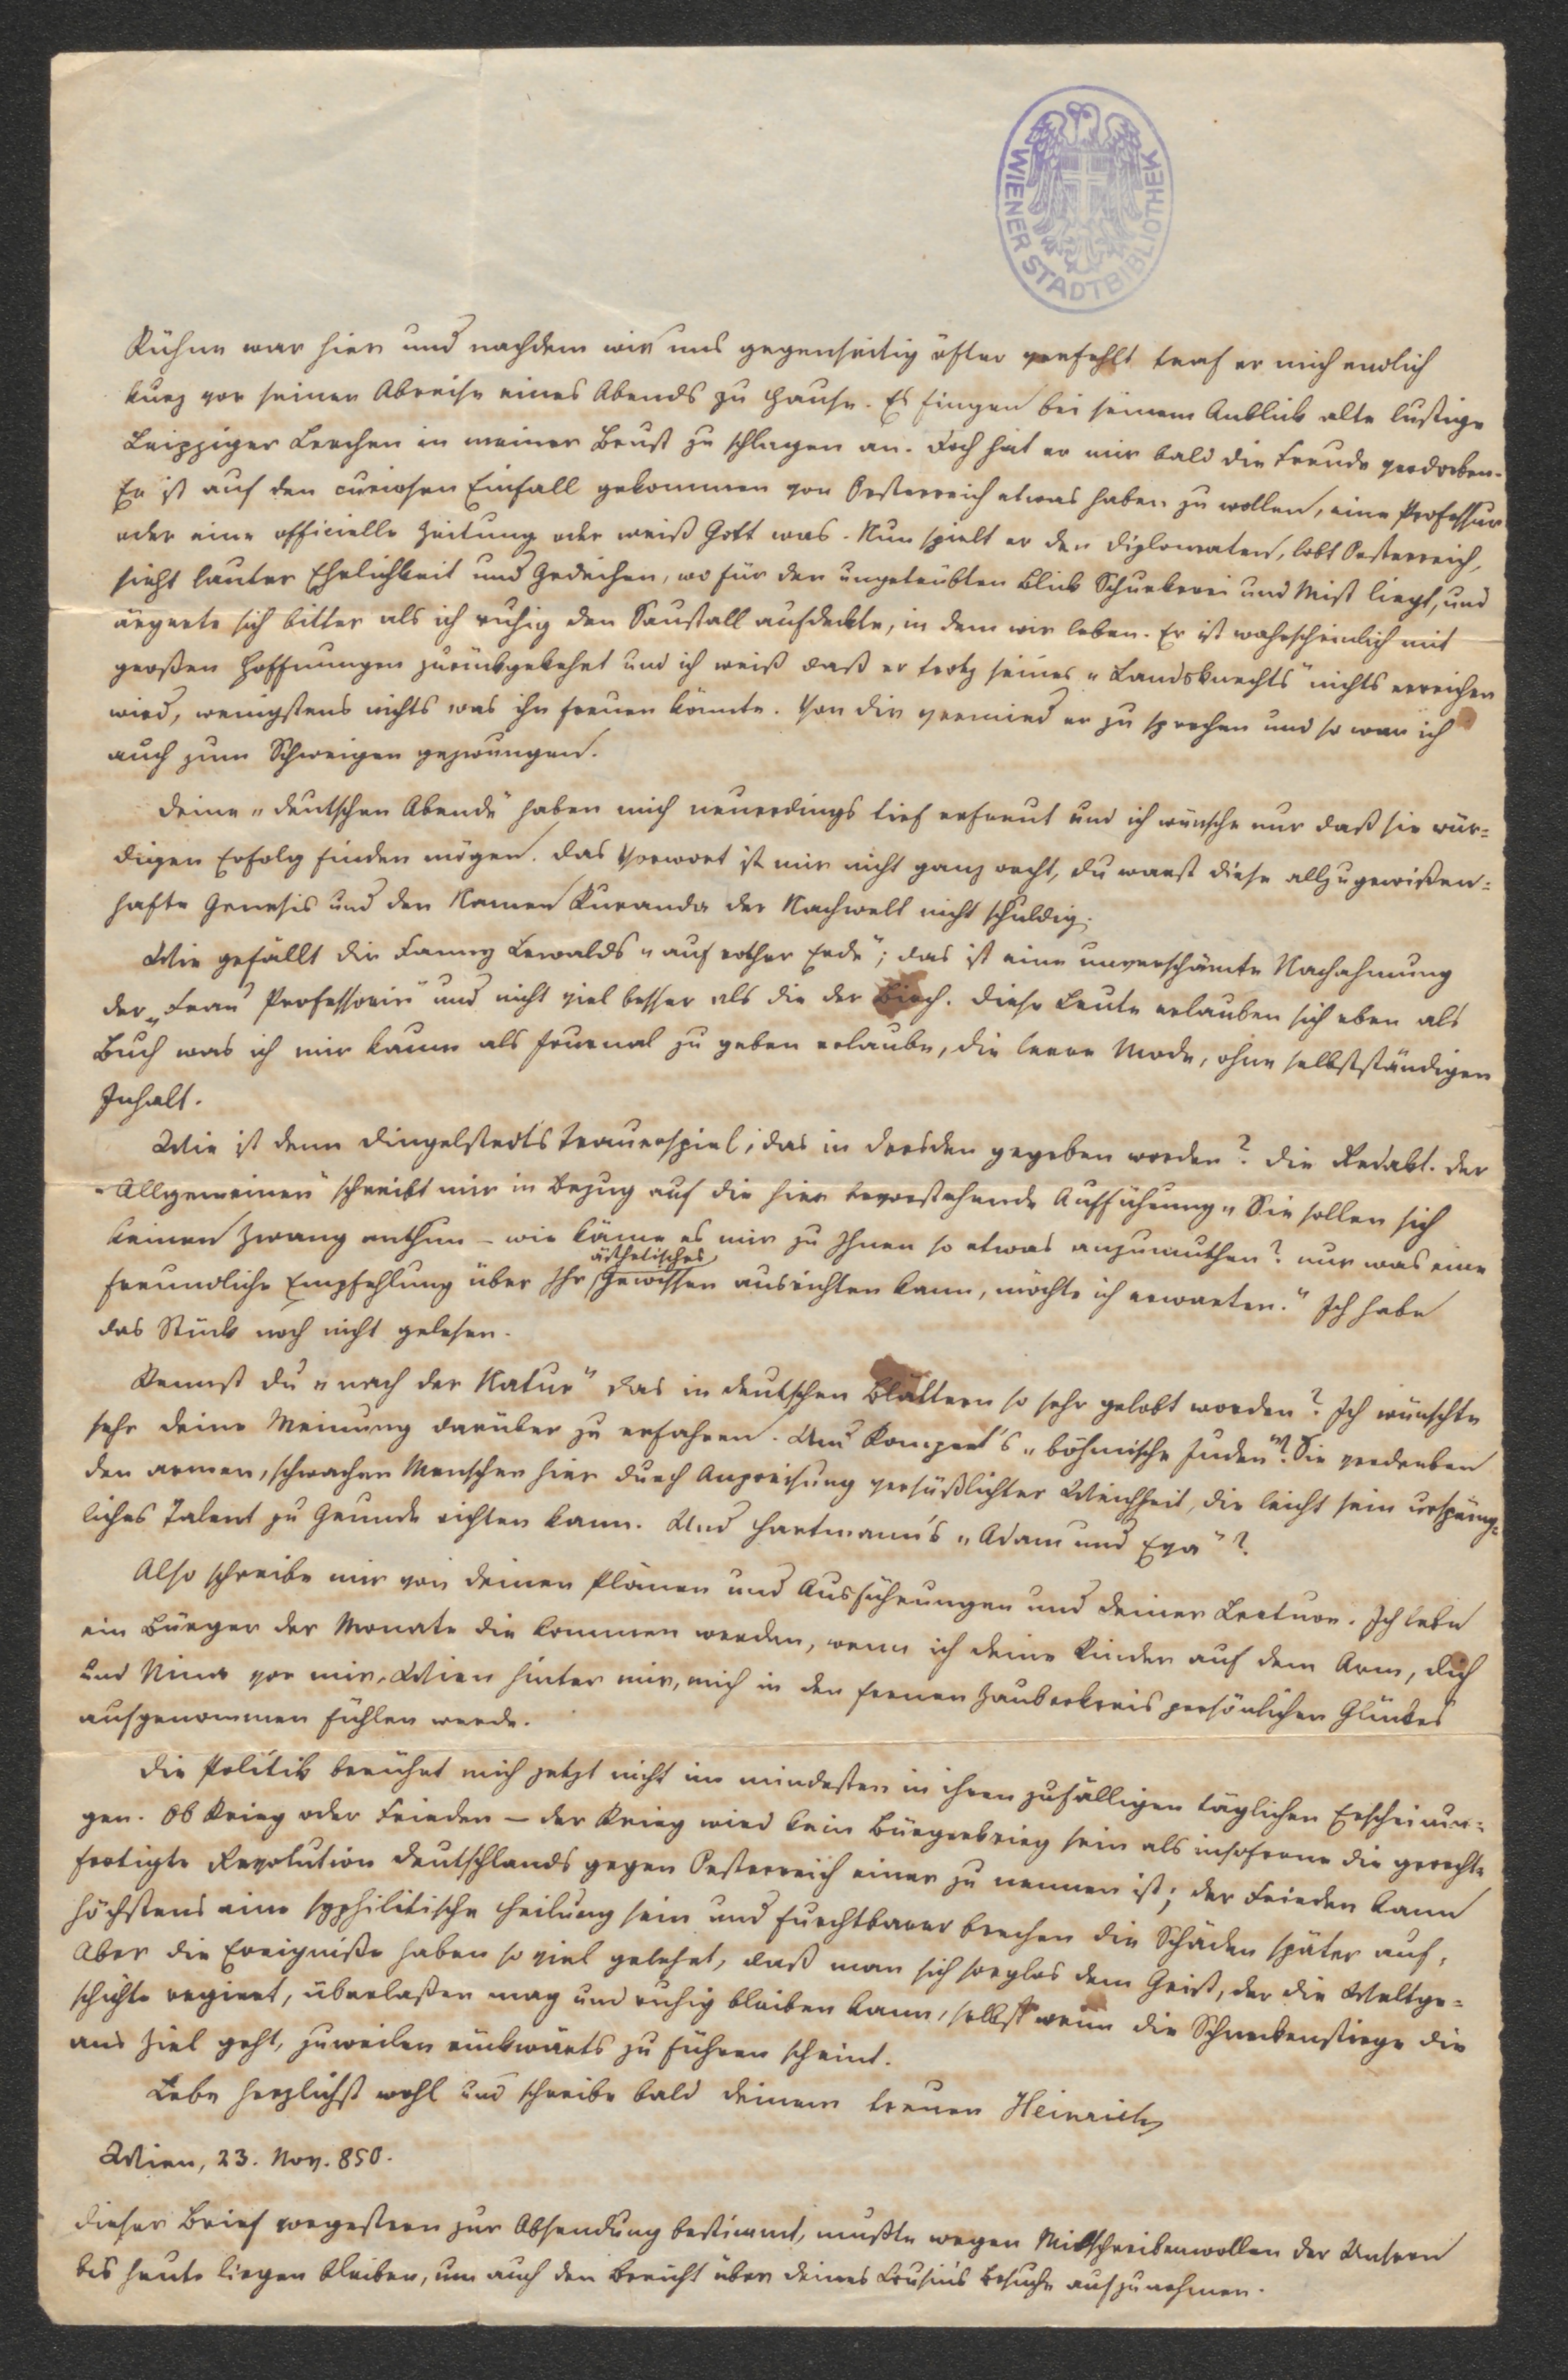 WIENER STADTBIBLIOTHEK
Kühne war hier und nachdem wir uns gegenseitig öfter verfehlt traf er mich endlich
kurz vor seiner Abreise eines Abends zu Hause. Es fingen bei seinem Anblick alte lustige
Leipziger Lerchen in meiner Brust zu schlagen an. Doch hat er mir bald die Freude verdorben.
Er ist auf den curiosen Einfall gekommen von Oesterreich etwas haben zu wollen, eine Professur
oder eine officielle Zeitung oder weiß Gott was. Nun spielt er den Diplomaten, lobt Oesterreich,
sieht lauter Ehrlichkeit und Gedeihen, wo für den ungetrübten Blick Schurkerei und Mist liegt, und
ärgerte sich bitter als ich ruhig den Saustall aufdeckte, in dem wir leben. Er ist wahrscheinlich mit
großen Hoffnungen zurückgekehrt und ich weiß daß er trotz seines „Landsknechts" nichts erreichen
wird, wenigstens nichts was ihn freuen könnte. Von dir vermied er zu sprechen und so war ich
auch zum Schweigen gezwungen.
Deine „deutschen Abende" haben mich neuerdings tief erfreut und ich wünsche nur daß sie wür=
digen Erfolg finden mögen. Das Vorwort ist mir nicht ganz recht, du warst diese allzugewißen=
hafte Genesis und den Namen Kuranda der Nachwelt nicht schuldig.
Wie gefällt dir Fanny Lewalds „auf rother Erde"; das ist eine unverschämte Nachahmung
der „Frau Professorin" und nicht viel besser als die der Birch. Diese Leute erlauben sich eben als
Buch was ich mir kaum als Journal zu geben erlaube, die leere Mode, ohne selbstständigen
Inhalt.
Wie ist denn Dingelstedts Trauerspiel, das in Dresden gegeben worden? Die Redakt. der
„Allgemeinen" schreibt mir in Bezug auf die hier bevorstehende Aufführung „Sie sollen sich
keinen Zwang anthun – wie käme es mir zu Ihnen so etwas anzumuthen? nur was eine
freundliche Empfehlung über Ihr ästhetisches Gewissen ausrichten kann, möchte ich erwarten." Ich habe
das Stück noch nicht gelesen.
Kennst du „nach der Natur" das in deutschen Blättern so sehr gelobt worden? Ich wünschte
sehr deine Meinung darüber zu erfahren. Und Kompert's „böhmische Juden"? Sie verderben
den armen, schwachen Menschen hier durch Anpreisung versüßlichter Weichheit, die leicht sein ursprüng=
liches Talent zu Grunde richten kann. Und Hartmann's „Adam und Eva"?
Also schreibe mir von deinen Plänen und Ausführungen und deiner Lecture. Ich lebe
ein Bürger der Monate die kommen werden, wenn ich deine Kinder auf dem Arm, dich
und Nina vor mir, Wien hinter mir, mich in den freien Zauberkreis persönlichen Glückes
aufgenommen fühlen werde.
Die Politik berührt mich jetzt nicht im mindesten in ihren zufälligen täglichen Erscheinun=
gen. Ob Krieg oder Frieden – der Krieg wird kein Bürgerkrieg sein als insoferne die gerecht=
fertigte Revolution Deutschlands gegen Oesterreich einer zu nennen ist; der Frieden kann
höchstens eine syphilitische Heilung sein und furchtbarer brechen die Schäden später auf.
Aber die Ereigniße haben so viel gelehrt, daß man sich sorglos dem Geist, der die Weltge=
schichte regiert, überlaßen mag und ruhig bleiben kann, selbst wenn die Schneckenstiege die
ans Ziel geht, zuweilen rückwärts zu führen scheint.
Lebe herzlichst wohl und schreibe bald deinem treuen Heinrich
Wien, 23. Nov. 850.
Dieser Brief vorgestern zur Absendung bestimmt, mußte wegen Mitschreibenwollen der Unsern
bis heute liegen bleiben, um auch den Bericht über deines Cousins Besuche aufzunehmen.